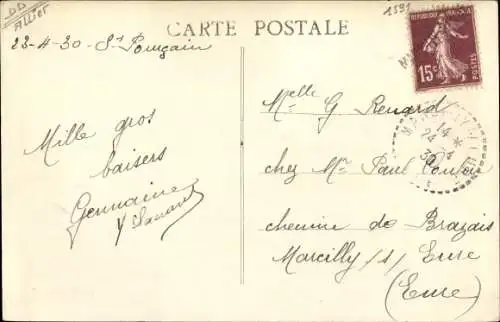 DD
Allier
1591
CARTE POSTALE
23-4-30 - St Pourçain
REPUBLIQUE FRANÇAISE
15c
POSTES
Melle G. Renard
14
24
30
Mille gros
baisers
Germaine
chez Mr Paul
chemin de Brazais
Marcilly /s/ Eure
(Eure)